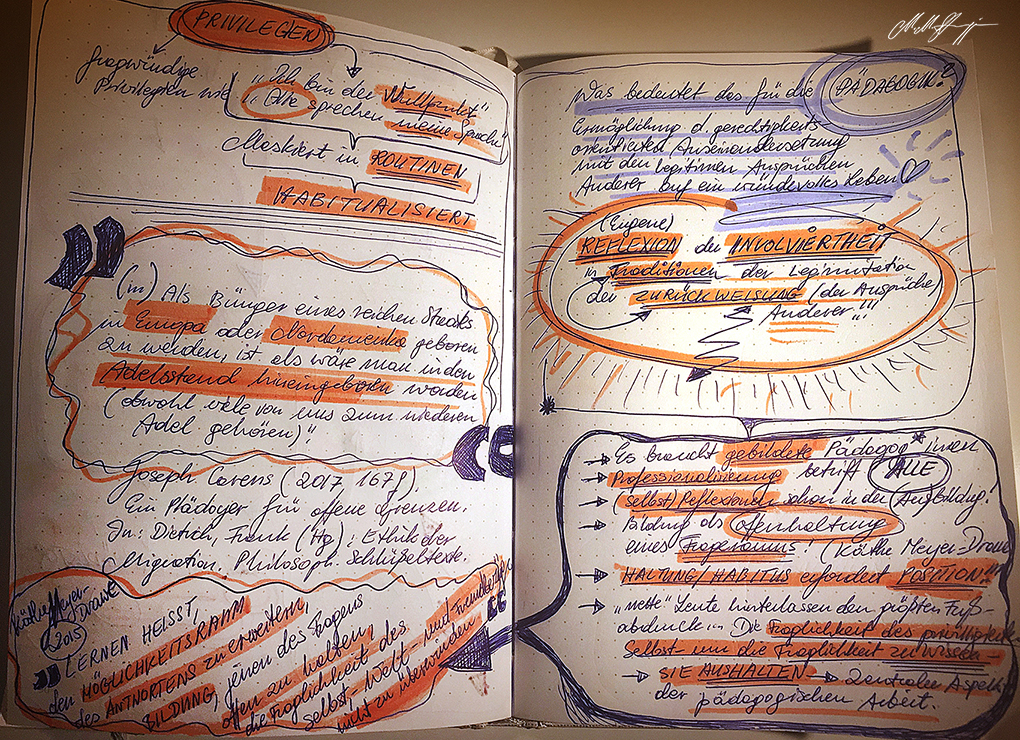 PRIVILEGIEN
fragwürdige
Privilegien wie
„Ich bin der Nullpunkt"
„Alle sprechen meine Sprache"
Maskiert in ROUTINEN
HABITUALISIERT
(in) Als Bürger eines reichen Staats
in Europa oder Nordamerika geboren
zu werden, ist als wäre man in den
Adelsstand hineingeboren worden
(obwohl viele von uns zum niederen
Adel gehören)".
Joseph Carens (2017, 167f).
Ein Plädoyer für offene Grenzen.
In: Dietrich, Frank (Hg): Ethik der
Migration. Philosoph. Schlüßeltexte.
Käthe Meyer-
Drawe
2015
LERNEN HEISST,
den MÖGLICHKEITSRAUM
des ANTWORTENS zu erweitern,
BILDUNG, jenen des Fragens
offen zu halten,
die Fraglichkeit des
Selbst- Welt- und Fremdbezüge
nicht zu überwinden
Was bedeutet das für die PÄDAGOGIK?
Ermöglichung d gerechtigkeits
orientierten Auseinandersetzung
mit den legitimen Ansprüchen
Anderer auf ein würdevolles Leben
(Eigene)
REFLEXION der INVOLVIERTHEIT
in Traditionen der Legitimation
der ZURÜCKWEISUNG (der Ansprüche)
Anderer!!!
Es braucht gebildete Pädagog*innen
Professionalisierung betrifft ALLE
(Selbst)Reflexionen schon in der (Aus)Bildung!
Bildung als Offenhaltung
eines Frageraums! (Käthe Meyer-Drawe
HALTUNG/HABITUS erfordert POSITION!"
„nette" Leute hinterlassen den größten Fuß-
abdruck. Die Fraglichkeit des privilegierten
Selbst- um die Fraglichkeit zu wissen-
SIE AUSHALTEN → Zentraler Aspekt
der pädagogischen Arbeit.